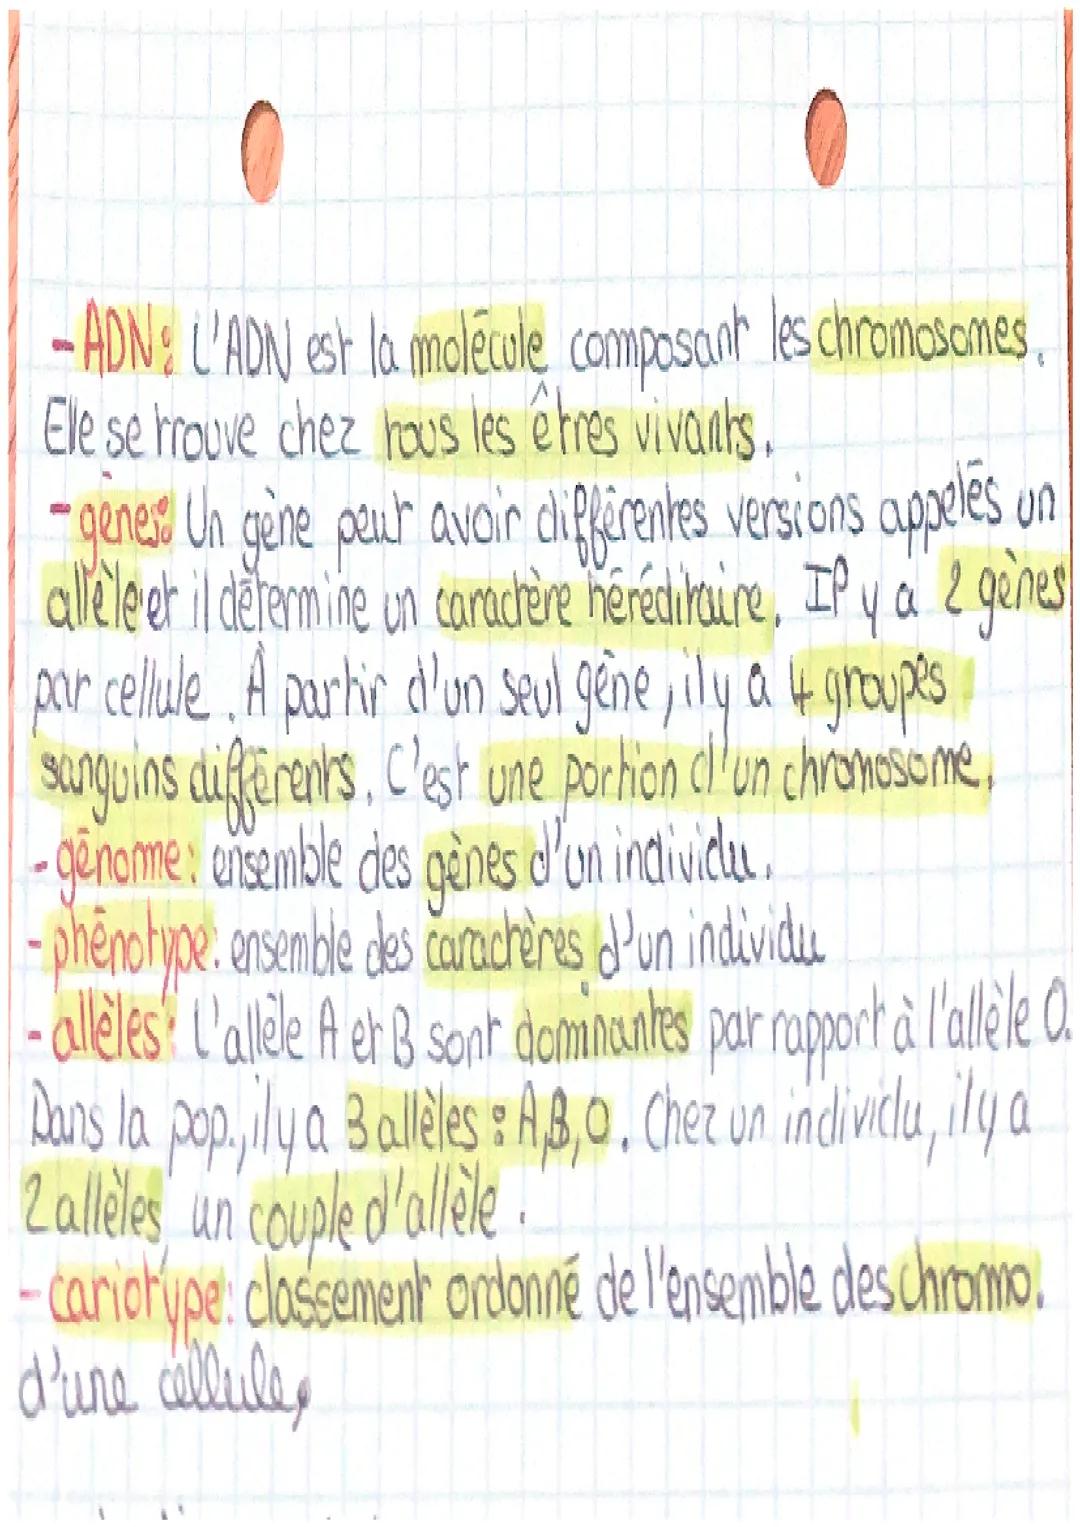 - ADN : L'ADN est la molécule composant les chromosomes.
Elle se trouve chez tous les êtres vivants.
- gènes : Un gène peut avoir différentes versions appelés un
allèle et il détermine un caractère héréditaire. Il y a 2 gènes
par cellule. À partir d'un seul gêne, il y a 4 groupes
sanguins différents. C'est une portion d'un chromosome.
- génome : ensemble des gènes d'un individu.
- phénotype : ensemble des caractères d'un individu
- allèles : L'allèle A et B sont dominantes par rapport à l'allèle O.
Dans la pop., il y a 3 allèles : A,B,O. Chez un individu, il y a
2 allèles, un couple d'allèle.
- cariotype : classement ordonné de l'ensemble des chromo.
d'une cellule,